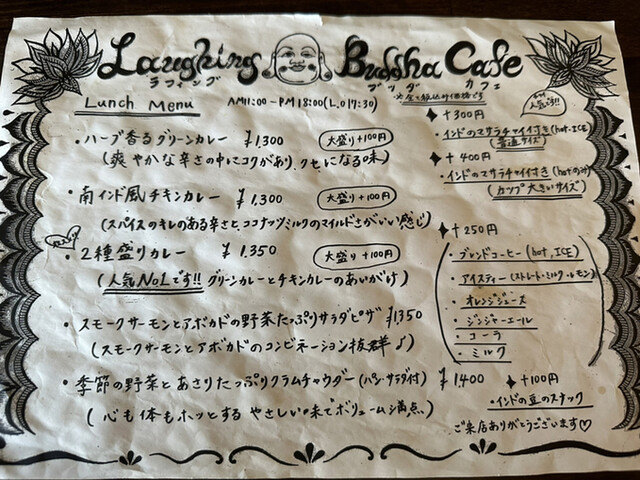 Laughing Buddha Cafe
ラフィング ブッダ カフェ
Lunch Menu AM11:00-PM18:00(L.O17:30)
※全て税込み価格です
・ハーブ香るグリーンカレー ¥1,300 大盛り+100円
(爽やかな辛さの中にコクがあり、クセになる味)
・南インド風チキンカレー ¥1,300 大盛り+100円
(スパイスのキレのある辛さとココナッツミルクのマイルドさがいい感じ)
・2種盛りカレー ¥1.350 大盛り+100円
(人気No1です!! グリーンカレーとチキンカレーのあいがけ)
・スモークサーモンとアボカドの野菜たっぷりサラダピザ ¥1,350
(スモークサーモンとアボカドのコンビネーション抜群♪)
・季節の野菜とあさりたっぷりクラムチャウダー(パン・サラダ付) ¥1,400
(心も体もホッとする やさしい味でボリューム満点)
人気です!!
+300円
・インドのマサラチャイ付き(hot・ICE)
普通サイズ
+400円
・インドのマサラチャイ付き(hotのみ)
(カップ大きいサイズ)
+250円
・ブレンドコーヒー(hot,ICE)
・アイスティー(ストレート・ミルク・レモン)
・オレンジジュース
・ジンジャーエール
・コーラ
・ミルク
+100円
・インドの豆のスナック
ご来店ありがとうございます♡